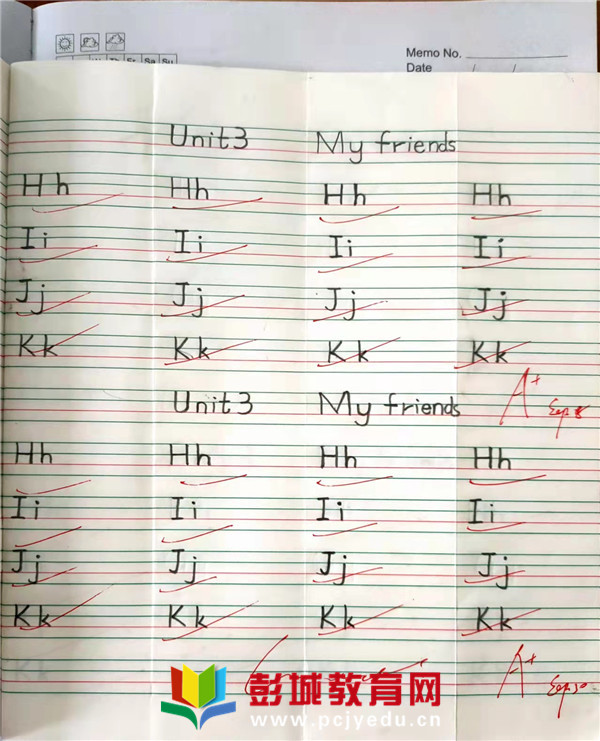 Memo No.
Date / /
Th Fr Sa Su
Unit 3 My friends
Hh Hh Hh Hh
Ii Ii Ii Ii
Jj Jj Jj Jj
Kk Kk Kk Kk
A+
Unit 3 My friends
Hh Hh Hh Hh
Ii Ii Ii Ii
Jj Jj Jj Jj
Kk Kk Kk Kk
A+
彭城教育网
www.pcjyedu.cn